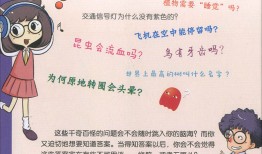 植物需要“睡觉”吗?
交通信号灯为什么没有紫色的?
飞机在空中能停留吗?
昆虫会流血吗?
乌龟有牙齿吗?
世界上最高的树叫什么名字?
为何原地转圈会头晕?
这些千奇百怪的问题会不会随时跳入你的脑海?而你
又迫切地想要知道答案。当得知答案以后,你会不会觉